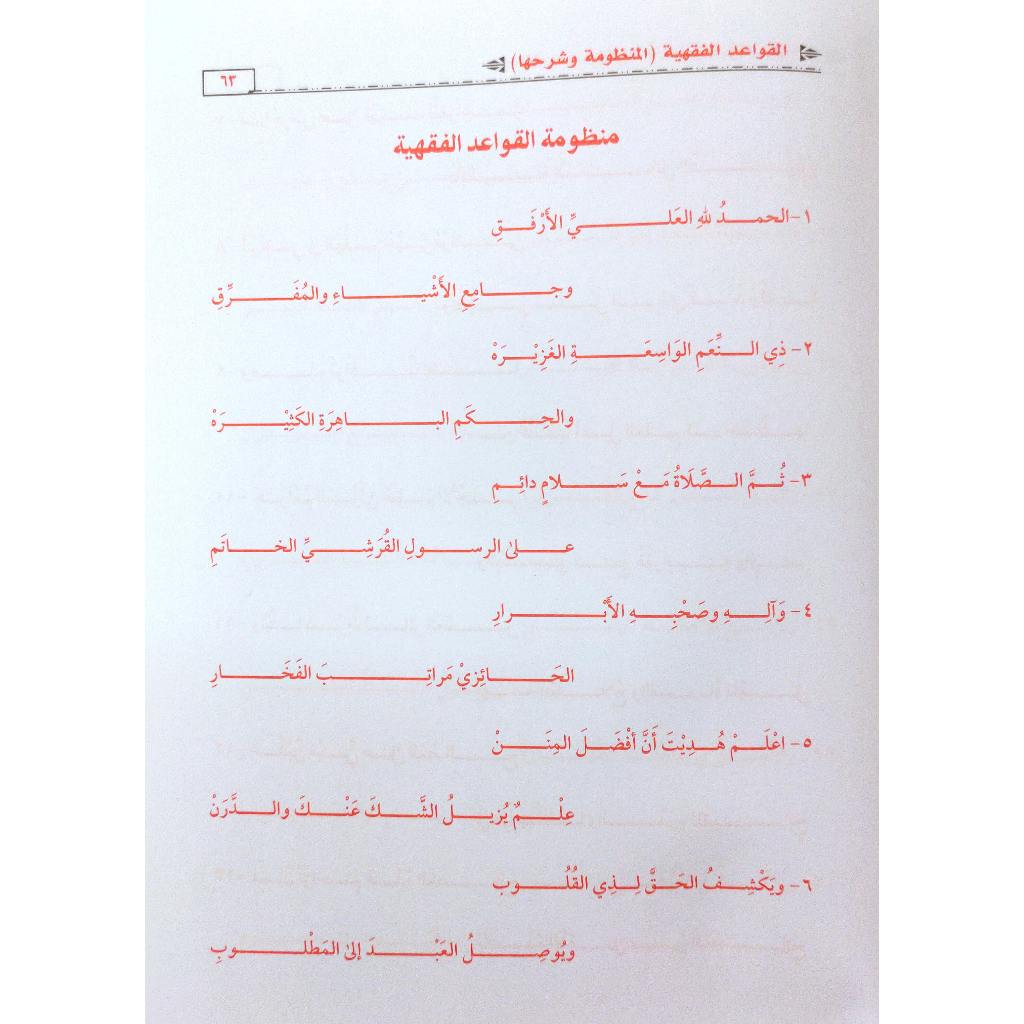 القواعد الفقهية (المنظومة وشرحها)
٦٣
منظومة القواعد الفقهية
١- الحمدُ للهِ العَليِّ الأَرْفَقِ
وجامِعِ الأَشْياءِ والمُفَرِّقِ
٢- ذِي النِّعَمِ الوَاسِعَةِ الغَزِيْرَهْ
والحِكَمِ الباهِرَةِ الكَثِيْرَهْ
٣- ثُمَّ الصَّلَاةُ مَعْ سَلامٍ دائِمِ
على الرسولِ القُرَشِيِّ الخاتَمِ
٤- وَآلِهِ وصَحْبِهِ الأَبْرارِ
الحَائِزيْ مَراتِبَ الفَخَارِ
٥- اعْلَمْ هُدِيْتَ أَنَّ أفْضَلَ المِنَنْ
عِلْمٌ يُزيلُ الشَّكَ عَنْكَ والدَّرَنْ
٦- ويَكْشِفُ الحَقَّ لِذي القُلُوبِ
ويُوصِلُ العَبْدَ إلىٰ المَطْلوبِ